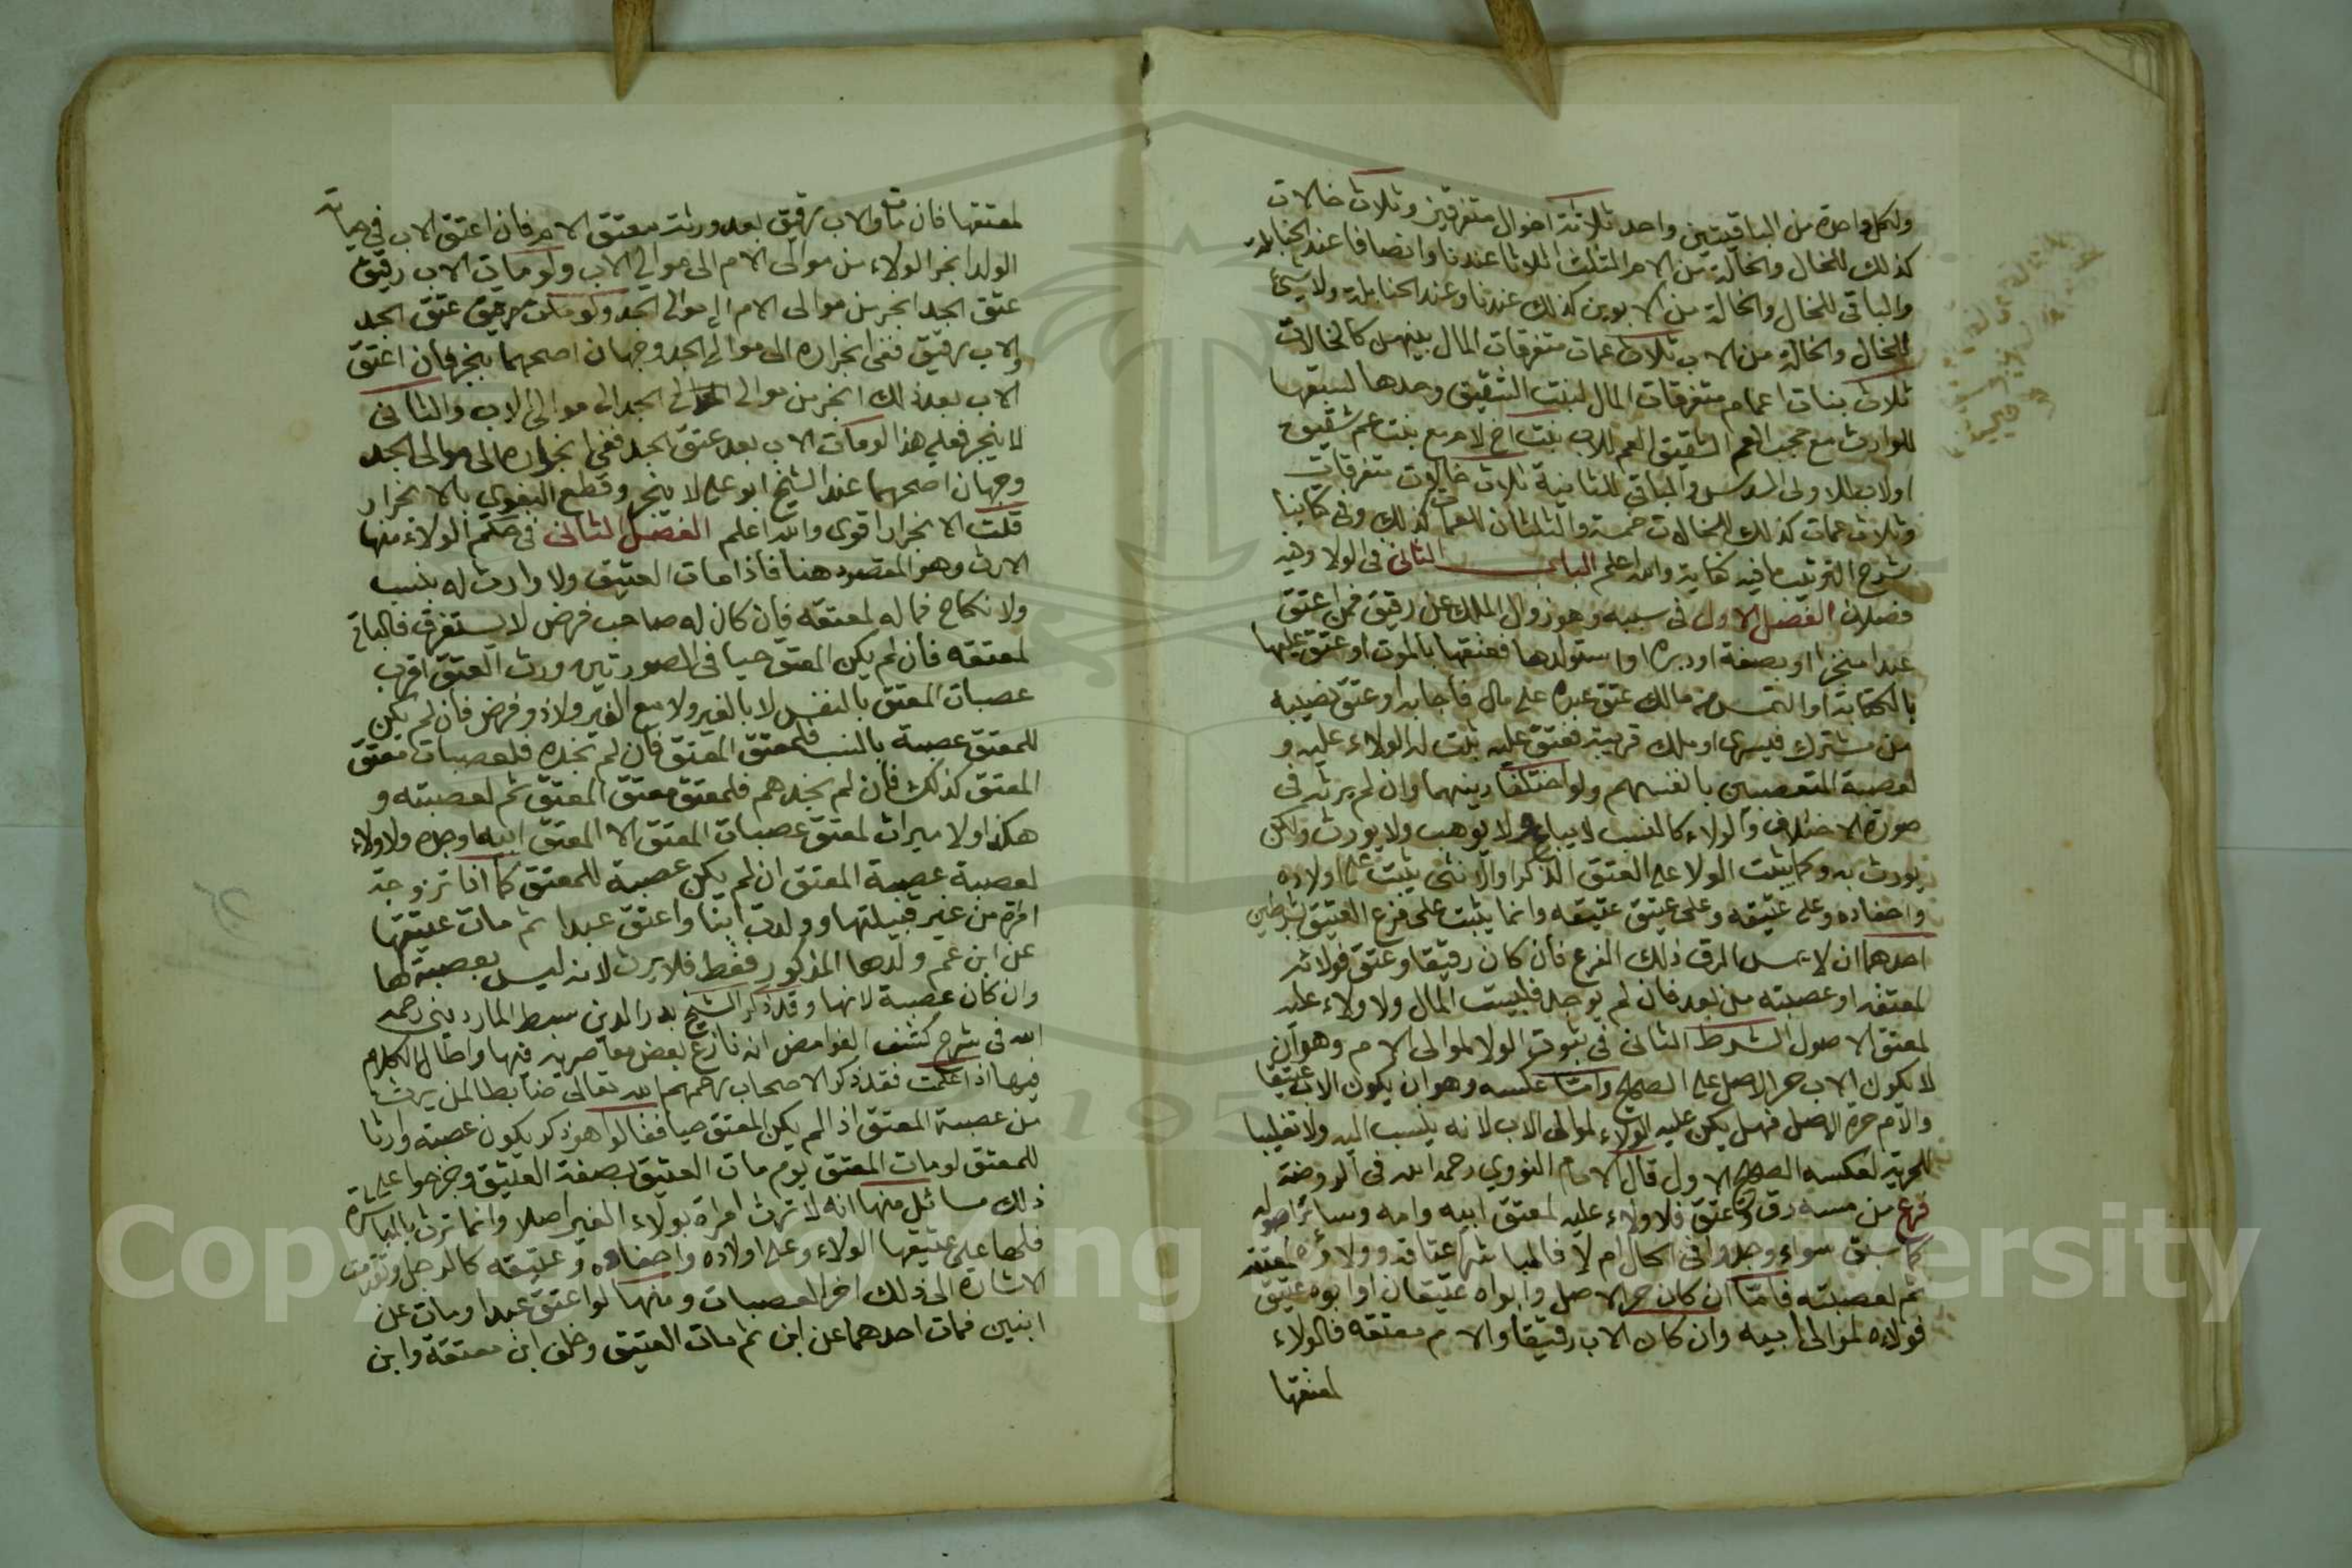 ولكل واحدة من الباقيتين واحد ثلاثة اخوال متفرقين وثلاث خالات
كذلك للخال والخالة من الام الثلث اثلاثا عندنا وانصافا عند الحنابلة
والباقي للخال والخالة من الابوين كذلك عندنا وعند الحنابلة ولا شيء
للخال والخالة من الاب ثلاث عمات متفرقات المال بينهن كالخالات
ثلاث بنات اعمام متفرقات المال لبنت الشقيق وحدها لسبقها
للوارث مع حجب العم الشقيق العم للاب بنت اخ لام مع بنت عم شقيق
اولاب للاولى السدس والباقي للثانية ثلاث خالات متفرقات
وثلاث عمات كذلك للخالات خمسة والثلثان للعمات كذلك وفي كتابنا
شرح الترتيب ما فيه كفاية والله اعلم الباب الثاني في الولا وفيه
فصلان الفصل الاول في سببه وهو زوال الملك عن رقيق فمن اعتق
عبدا منجزا او بصفة او دبره او استولدها فعتقها بالموت او عتق عليها
بالكتابة او التمس من مالك عتق عبده على مال فاجابه او عتق نصيبه
من مشترك فيسرى او ملك قريبه فعتق عليه ثبت له الولاء عليه و
لعصبة المتعصبين بانفسهم ولو اختلفا دينهما وان لم يرثه في
صورة الاختلاف والولاء كالنسب لايباع ولا يوهب ولا يورث ولكن
يورث به وكما يثبت الولا على العتق الذكر او الانثى يثبت على اولاده
واحفاده وعلى عتيقه وعلى عتيق عتيقه وانما يثبت على فرع العتيق بشرطين
احدهما ان لا يمس الرق ذلك الفرع فان كان رقيقا وعتق فولائه
لمعتقه او عصبته من بعد فان لم يوجد فلبيت المال ولا ولاء عليه
لمعتق الاصول الشرط الثاني في ثبوت الولا لموالى الام وهو ان
لا يكون الاب حر الاصل على الصحيح واما عكسه وهو ان يكون الاب عتيقا
والام حرة الاصل فهل يكن عليه الولاء لموالى الاب لانه ينسب اليه ولا تغليبا
للحرية لعكسه الصحيح الاول قال الامام النووي رحمه الله في الروضة
فرع من مسه رق وعتق فلا ولاء عليه لمعتق ابيه وامه وسائر اصوله
كما سبق سواء وجدوا في الحال ام لا فالمباشر اعتاقه وولاؤه لمعتقه
ثم لعصبته فاما ان كان حر الاصل وابواه عتيقان او ابوه عتيق
فولاه لموالى ابيه وان كان الاب رقيقا والام معتقة فالولاء
لمعتقها
لمعتقها فان مات والاب رقيق بعد ورثه معتق الام فان اعتق الاب في حياته
الولد انجر الولاء من موالى الام الى موالي الاب ولو مات الاب رقيق
عتق الجد انجر من موالى الام الى موالى الجد ولو عتق الجد
والاب رقيق ففي انجراره الى موالى الجد وجهان اصحهما ينجر فان اعتق
الاب بعد ذلك انجر من موالى الجد الى موالى الاب والثاني
لا ينجر فعلى هذا لو مات الاب بعد عتق الجد ففي انجراره الى موالى الجد
وجهان اصحهما عند الشيخ ابو علي لا ينجر وقطع البغوي بالانجرار
قلت الانجرار اقوى والله اعلم الفصل الثاني في حكم الولاء منها
الارث وهو المقصود هنا فاذا مات العتيق ولا وارث له بنسب
ولا نكاح فماله لمعتقه فان كان له صاحب فرض لا يستغرق فالباقي
لمعتقه فان لم يكن المعتق حيا في الصورتين ورث العتق اقرب
عصبات المعتق بالنفس لا بالغير ولا مع الغير ولا ذو فرض فان لم يكن
للمعتق عصبة بالنسب فلمعتق المعتق فان لم تجده فلعصبات معتق
المعتق كذلك فان لم تجدهم فلمعتق معتق المعتق ثم لعصبته و
هكذا ولا ميراث لمعتق عصبات المعتق الا المعتق ابيه او جده ولا ولاء
لعصبة عصبة المعتق ان لم يكن عصبة للمعتق كما اذا تزوجت
امرأة من غير قبيلتها وولدت ابنا واعتق عبدا ثم مات عتيقها
عن ابن عم ولدها المذكور فقط فلا يرث لانه ليس بعصبة لها
وان كان عصبة لابنها وقد ذكر الشيخ بدر الدين سبط المارديني رحمه
الله في شرح كشف الغوامض انه نازع بعض معاصريه فيها واطال الكلام
فيها اذا علمت فقد ذكر الاصحاب رحمهم الله تعالى ضابطا لمن يرث
من عصبة المعتق اذ الم يكن المعتق حيا فقالوا هو ذكر يكون عصبة وارثا
للمعتق لو مات المعتق يوم مات العتيق بصفة العتيق وخرجوا على
ذلك مسائل منها انه لا ترث امرأة بولاء الغير اصلا وانما ترث بالمباشرة
فلها على عتيقها الولاء وعلى اولاده واحفاده وعتيقه كالرجل وتقدمت
الاشارة الى ذلك اخر العصبات ومنها لو اعتق عبدا ومات عن
ابنين فمات احدهما عن ابن ثم مات العتيق وخلف ابن معتقه وابن